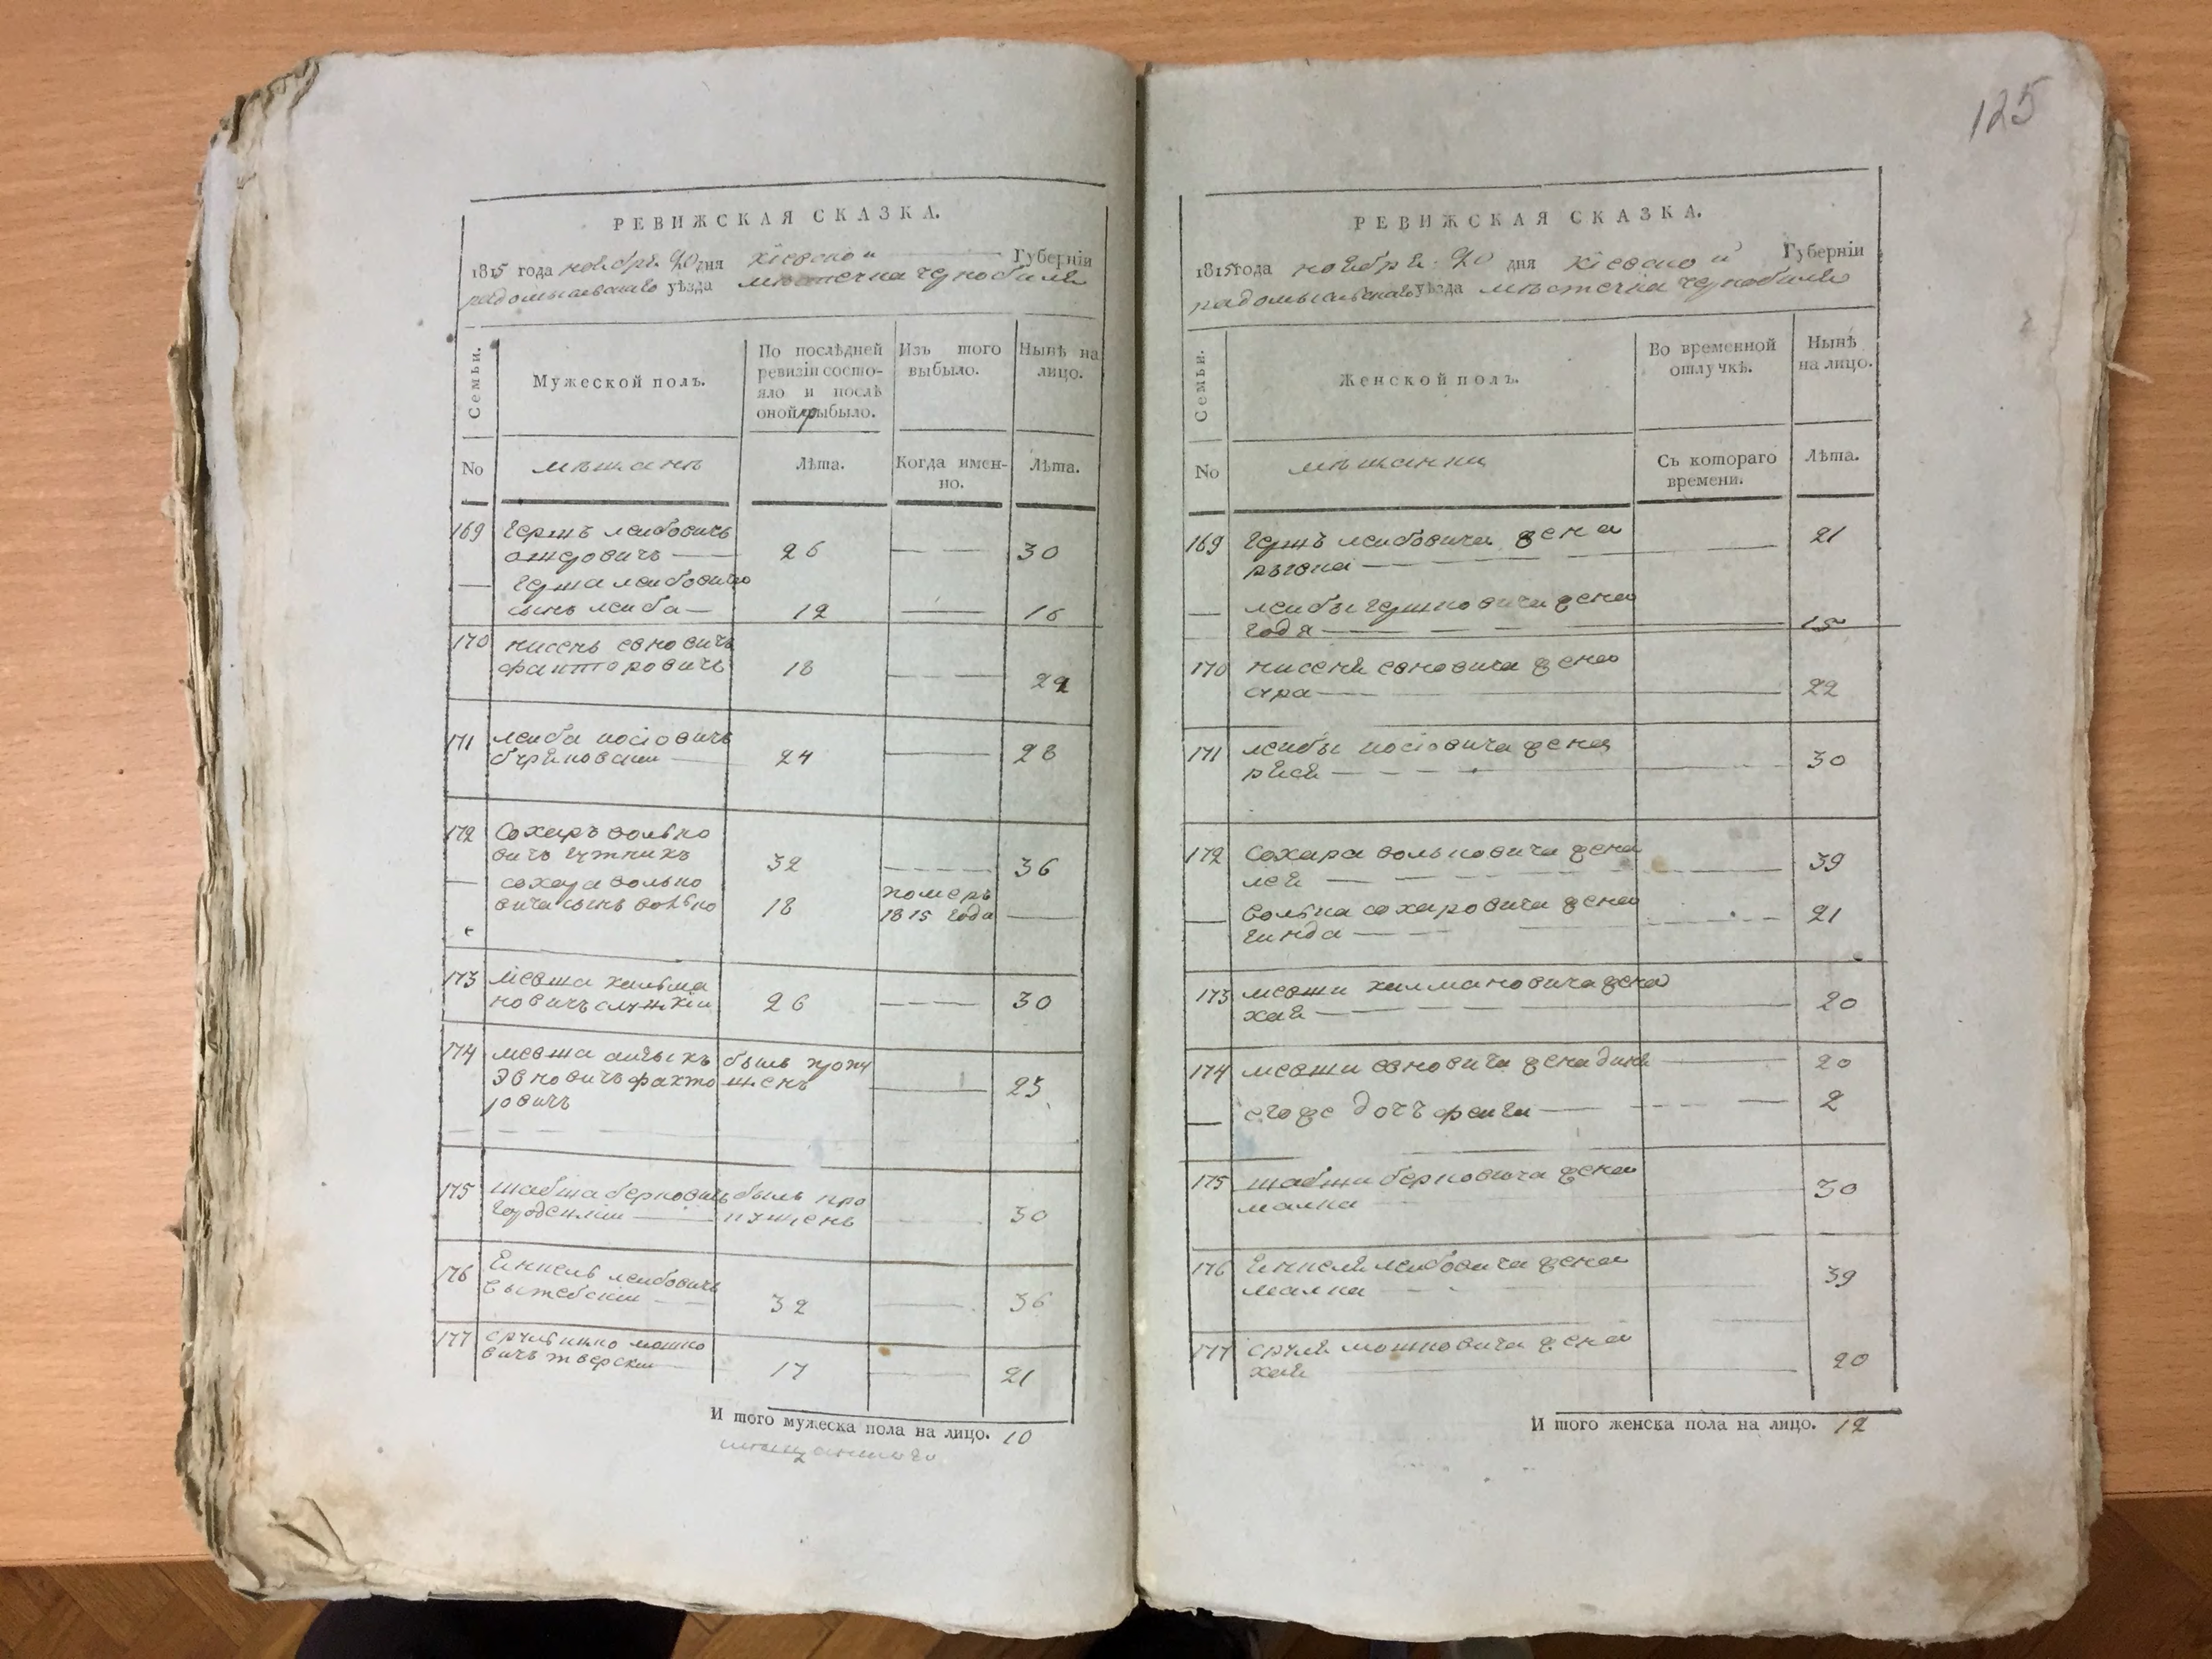 РЕВИЖСКАЯ СКАЗКА.
1815 года ноября 20 дня Кіевской Губерніи
радомысльского уѣзда мѣстечка чернобиля
Семьи.
Мужеской полъ.
По послѣдней
ревизіи состо-
яло и послѣ
оной прибыло.
Изъ того
выбыло.
Нынѣ на
лицо.
No
мѣщанъ
Лѣта.
Когда имен-
но.
Лѣта.
169 Гершъ лейбовичъ
26 30
Герша лейбовича
сынъ лейба 12 16
170 нисень евновичъ
факторовичъ 18 22
171 лейба посіовичъ
24 28
172 Сохаръ волько
вичъ 32 36
сохара волько
вича сынъ волько 18 померъ
1815 года
173 мевша хильма
новичъ служкіи 26 30
174 мевша былъ пропу
эвновичъ факто щенъ 25
ровичъ
175 шабша берковичъ былъ про
пущенъ 30
176 Енкель лейбовичъ
32 36
177 сруль ицко мошко
вичъ тверскии 17 21
И того мужеска пола на лицо. 10
125
РЕВИЖСКАЯ СКАЗКА.
1815 года ноября 20 дня Кіевской Губерніи
радомысльского уѣзда мѣстечка чернобиля
Семьи.
Женской полъ.
Во временной
отлучкѣ.
Нынѣ
на лицо.
No
мѣщанки
Съ котораго
времени.
Лѣта.
169 Гершъ лейбовича жена 21
лейбы Гершковича жена
годя 15
170 нисеня евновича жена
сура 22
171 лейбы посіовича жена
рися 30
172 Сохара вольковича жена
лея 39
Волька сохаровича жена 21
гинда
173 мевши хилмановича жена
хая 20
174 мевши евновича жена 20
егоже дочъ фейги 2
175 шабши берковича жена
малка 30
176 Енкеля лейбовича жена
малка 39
177 сруля мошковича жена
хая 20
И того женска пола на лицо. 12